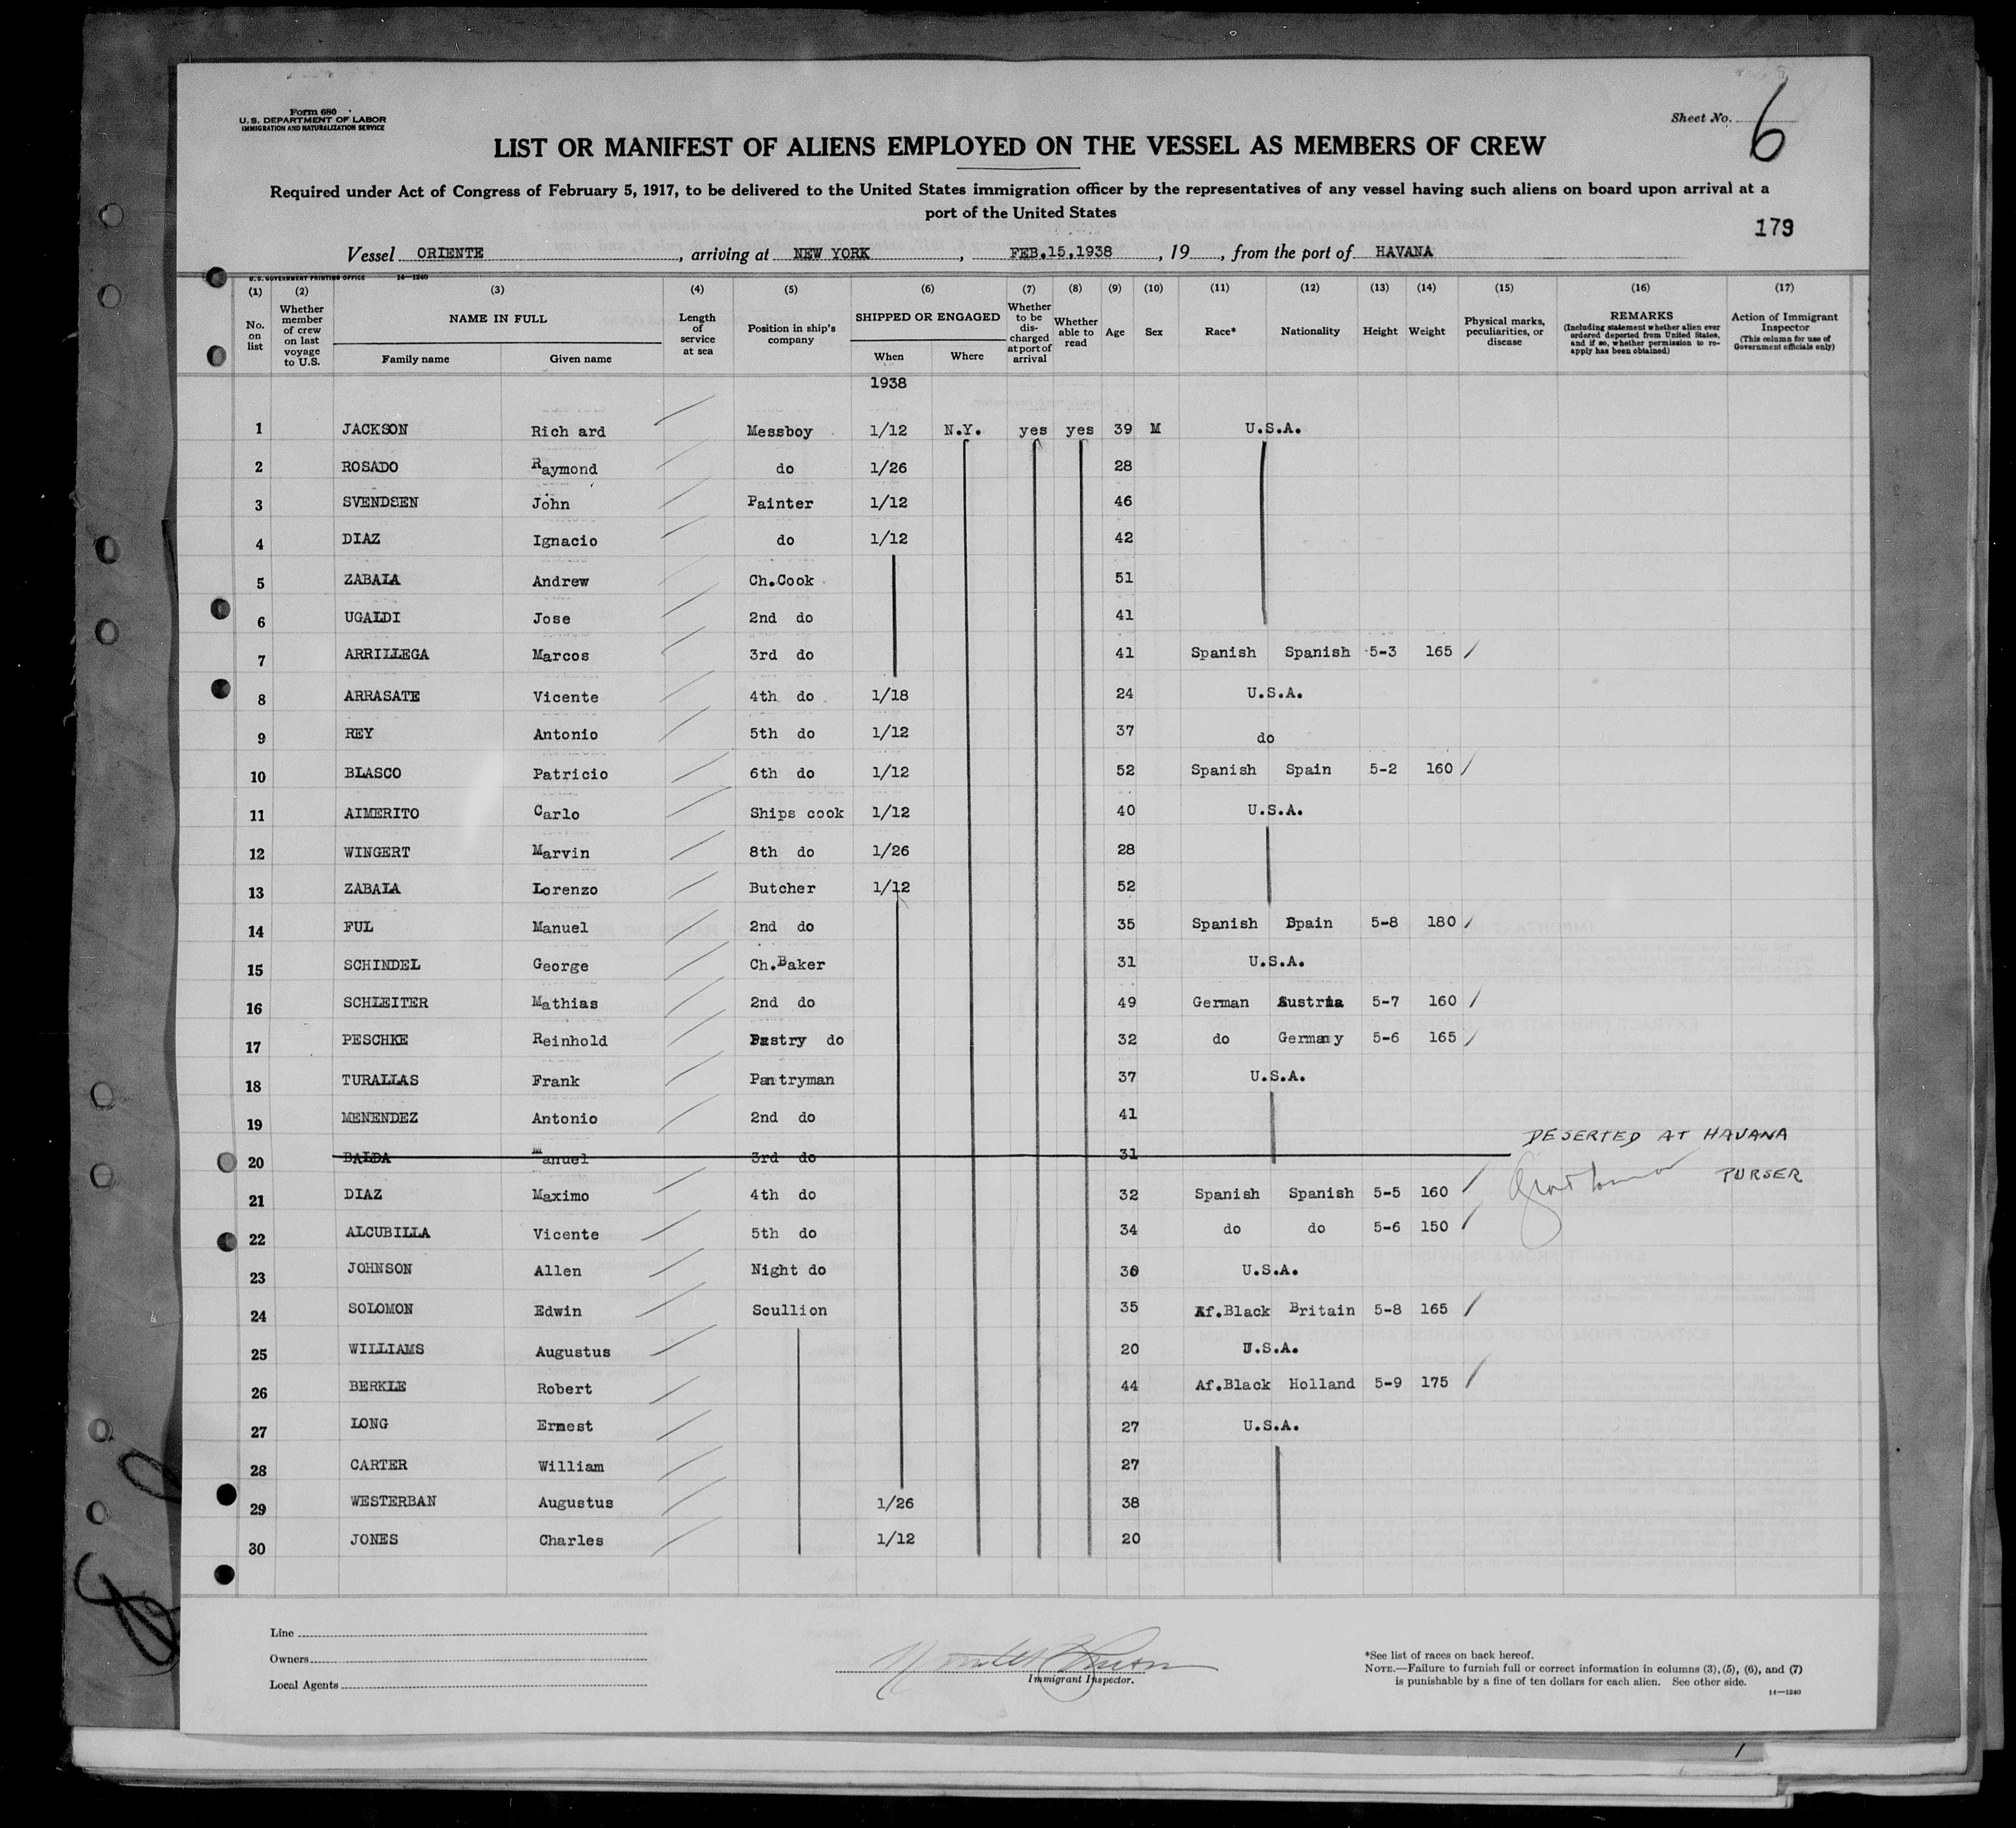 Form 680
U. S. DEPARTMENT OF LABOR
IMMIGRATION AND NATURALIZATION SERVICE
Sheet No. 6
LIST OR MANIFEST OF ALIENS EMPLOYED ON THE VESSEL AS MEMBERS OF CREW
Required under Act of Congress of February 5, 1917, to be delivered to the United States immigration officer by the representatives of any vessel having such aliens on board upon arrival at a
port of the United States
179
Vessel ORIENTE, arriving at NEW YORK, FEB.15,1938, 19, from the port of HAVANA
U. S. GOVERNMENT PRINTING OFFICE 14—1240
(1) (2) (3) (4) (5) (6) (7) (8) (9) (10) (11) (12) (13) (14) (15) (16) (17)
No. on list
Whether member of crew on last voyage to U.S.
NAME IN FULL
Family name Given name
Length of service at sea
Position in ship's company
SHIPPED OR ENGAGED
When Where
Whether to be discharged at port of arrival
Whether able to read
Age
Sex
Race*
Nationality
Height
Weight
Physical marks, peculiarities, or disease
REMARKS
(Including statement whether alien ever ordered deported from United States, and if so, whether permission to reapply has been obtained)
Action of Immigrant Inspector
(This column for use of Government officials only)
1938
1 JACKSON Rich ard Messboy 1/12 N.Y. yes yes 39 M U.S.A.
2 ROSADO Raymond do 1/26 28
3 SVENDSEN John Painter 1/12 46
4 DIAZ Ignacio do 1/12 42
5 ZABALA Andrew Ch.Cook 51
6 UGALDI Jose 2nd do 41
7 ARRILLEGA Marcos 3rd do 41 Spanish Spanish 5-3 165
8 ARRASATE Vicente 4th do 1/18 24 U.S.A.
9 REY Antonio 5th do 1/12 37 do
10 BLASCO Patricio 6th do 1/12 52 Spanish Spain 5-2 160
11 AIMERITO Carlo Ships cook 1/12 40 U.S.A.
12 WINGERT Marvin 8th do 1/26 28
13 ZABALA Lorenzo Butcher 1/12 52
14 FUL Manuel 2nd do 35 Spanish Spain 5-8 180
15 SCHINDEL George Ch.Baker 31 U.S.A.
16 SCHLEITER Mathias 2nd do 49 German Austria 5-7 160
17 PESCHKE Reinhold Pastry do 32 do Germany 5-6 165
18 TURALLAS Frank Pantryman 37 U.S.A.
19 MENENDEZ Antonio 2nd do 41
DESERTED AT HAVANA
20 BALDA Manuel 3rd do 31
PURSER
21 DIAZ Maximo 4th do 32 Spanish Spanish 5-5 160
22 ALCUBILLA Vicente 5th do 34 do do 5-6 150
23 JOHNSON Allen Night do 30 U.S.A.
24 SOLOMON Edwin Scullion 35 Af.Black Britain 5-8 165
25 WILLIAMS Augustus 20 U.S.A.
26 BERKLE Robert 44 Af.Black Holland 5-9 175
27 LONG Ernest 27 U.S.A.
28 CARTER William 27
29 WESTERBAN Augustus 1/26 38
30 JONES Charles 1/12 20
Line
Owners
Local Agents
Immigrant Inspector.
*See list of races on back hereof.
NOTE.—Failure to furnish full or correct information in columns (3), (5), (6), and (7)
is punishable by a fine of ten dollars for each alien. See other side.
14—1240